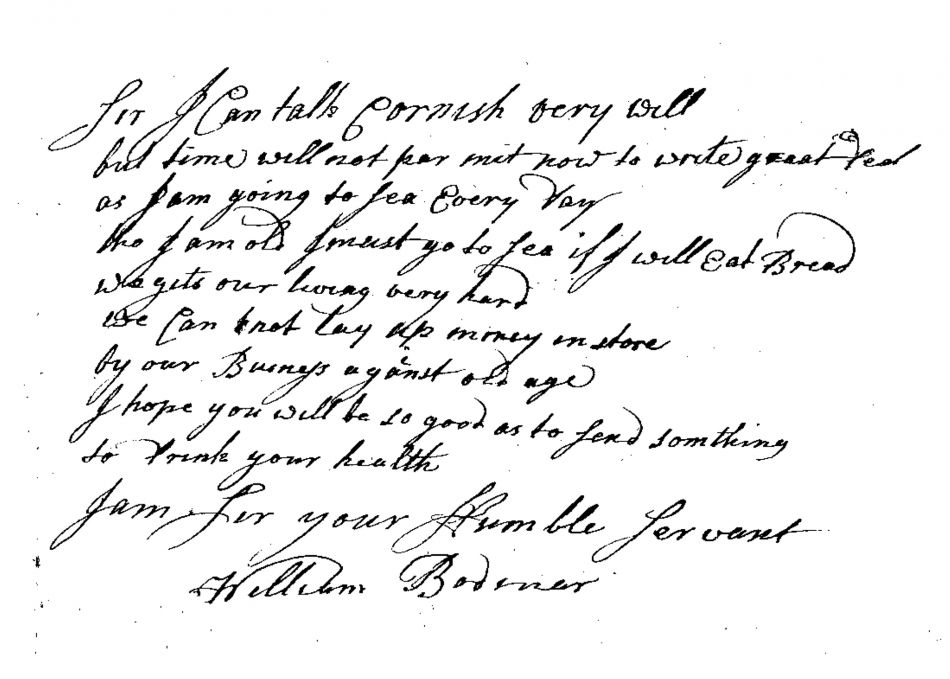 Sir I Can talk Cornish very will
but time will not par mit now to write great deal
as I am going to sea Every day
tho I am old I must go to sea if I will Eat Bread
we gits our living very hard
we Can not lay up money in store
by our Busness against old age
I hope you will be so good as to send somthing
to drink your health
I am Sir your Humble Servant
William Bodener